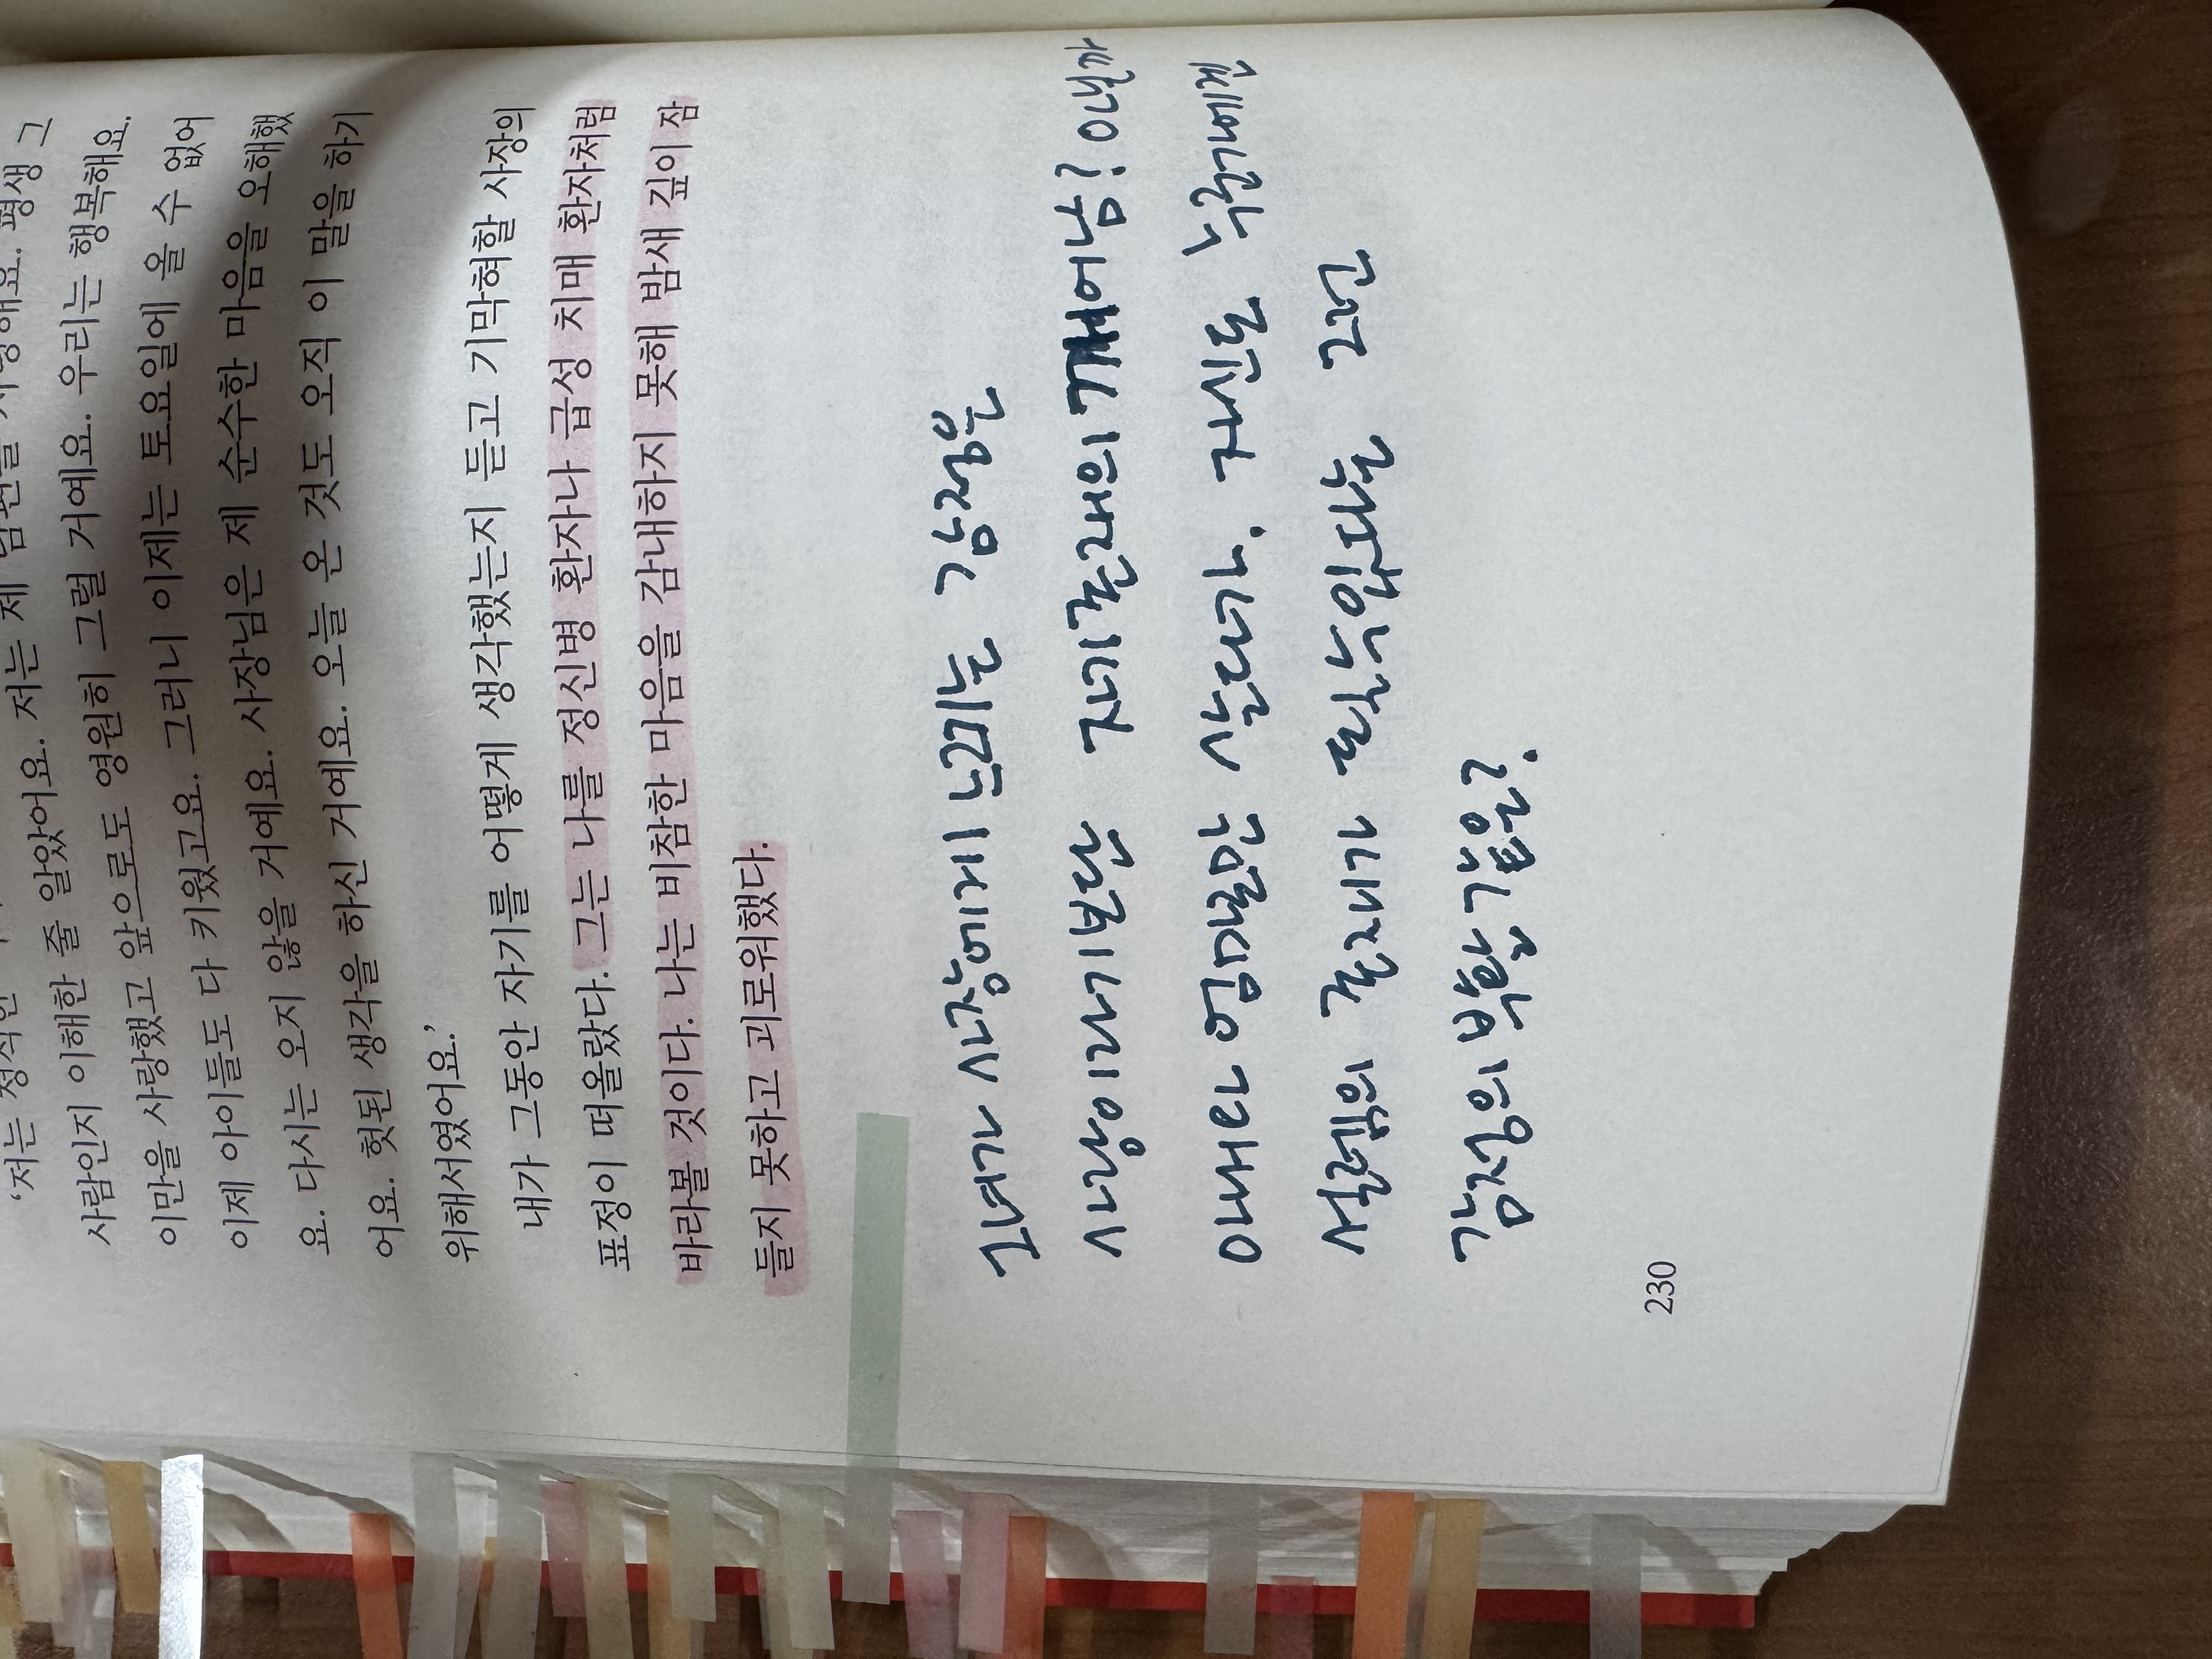 사람인지 이해한 줄 알았어요. 저는 제 남편을 사랑해요. 평생 그
이만을 사랑했고 앞으로도 영원히 그럴 거예요. 우리는 행복해요.
이제 아이들도 다 키웠고요. 그러니 이제는 토요일에 올 수 없어
요. 다시는 오지 않을 거예요. 사장님은 제 순수한 마음을 오해했
어요. 헛된 생각을 하신 거예요. 오늘 온 것도 오직 이 말을 하기
위해서였어요.’
내가 그동안 자기를 어떻게 생각했는지 듣고 기막혀할 사장의
표정이 떠올랐다. 그는 나를 정신병 환자나 급성 치매 환자처럼
바라볼 것이다. 나는 비참한 마음을 감내하지 못해 밤새 깊이 잠
들지 못하고 괴로워했다.
그녀가 사장에게 느끼는 감정은
사랑이라기보단 자기존재의 깨어남? 아닐까
아내와 엄마로만 살다가. 자신도 누군가에겐
설렘의 존재가 될 수 있다는 그런
감정의 발현 같은?
230